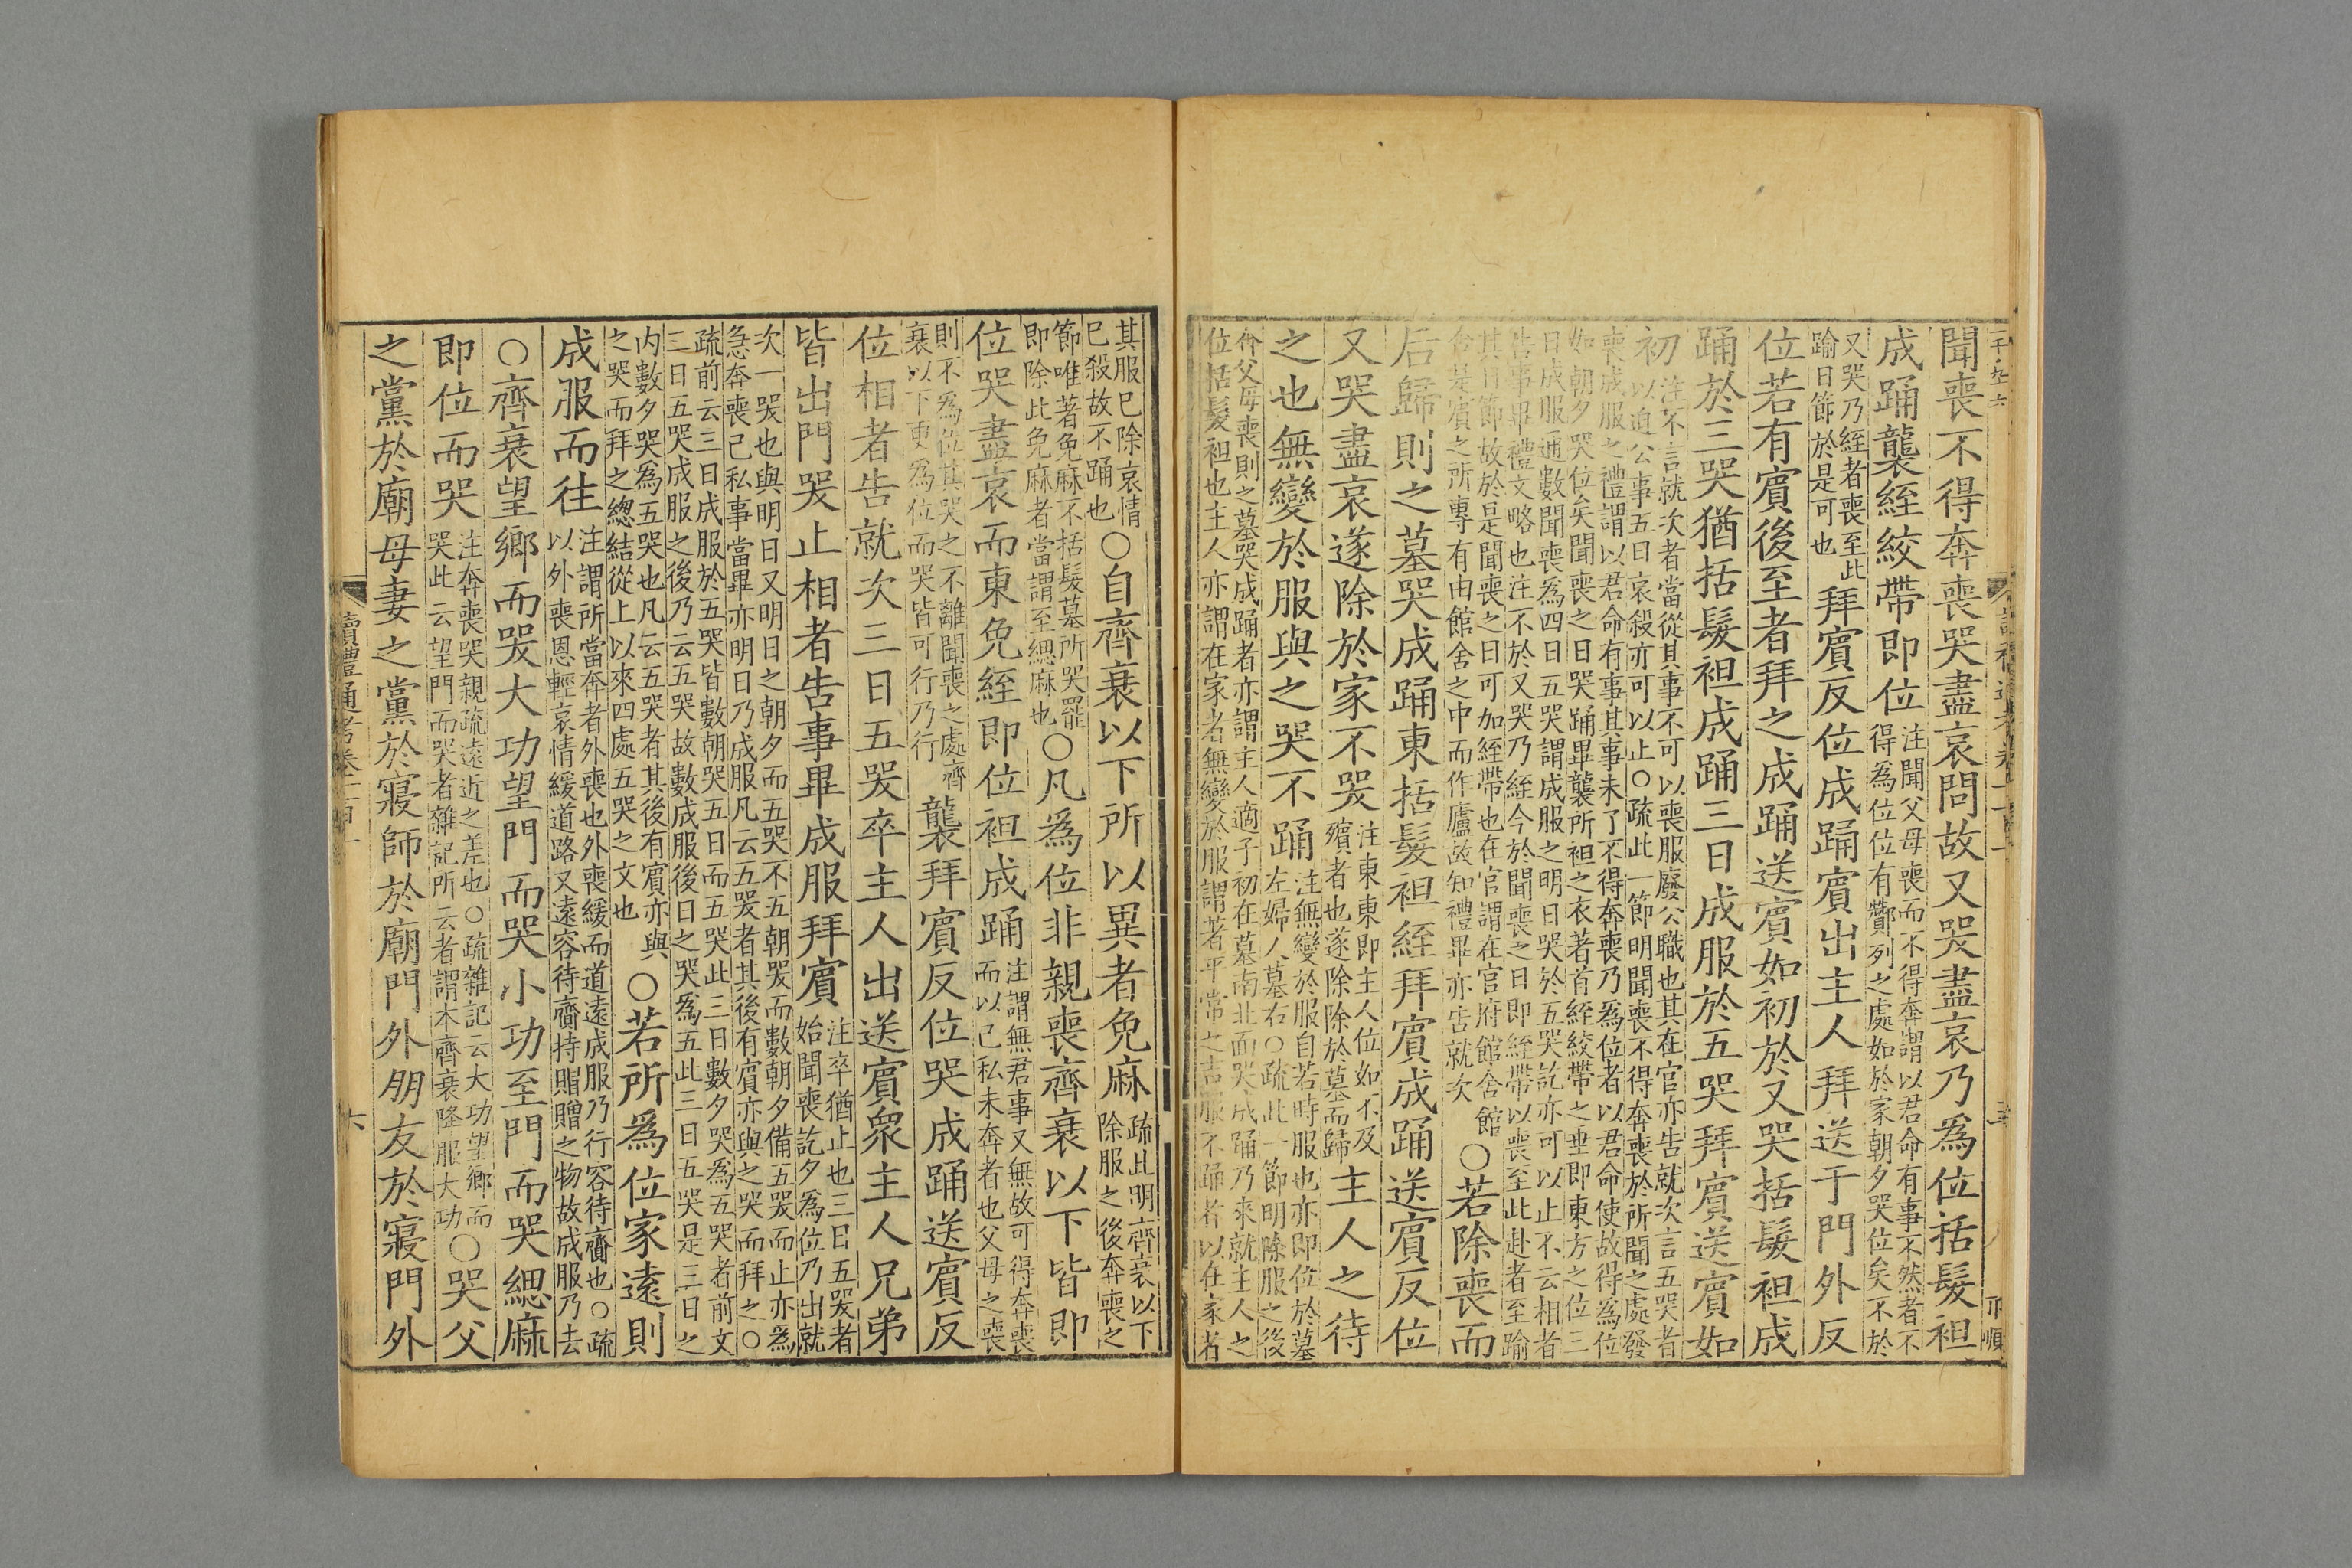 聞喪不得奔喪哭盡哀問故又哭盡哀乃爲位括髮袒
成踊襲絰絞帶即位注聞父母喪而不得奔謂以君命有事不然者不
得爲位位有酇列之處如於家朝夕哭位矣不於
又哭乃絰者喪至此
踰日節於是可也拜賓反位成踊賓出主人拜送于門外反
位若有賓後至者拜之成踊送賓如初於又哭括髮袒成
踊於三哭猶括髮袒成踊三日成服於五哭拜賓送賓如
初注不言就次者當從其事不可以喪服廢公職也其在官亦告就次言五哭者
以迫公事五日哀殺亦可以止○疏此一節明聞喪不得奔喪於所聞之處發
喪成服之禮謂以君命有事其事未了不得奔喪乃爲位者以君命使故得爲位
如朝夕哭位矣聞喪之日哭踊畢襲所袒之衣著首絰絞帶之垂即東方之位三
日成服通數聞喪爲四日五哭謂成服之明日哭於五哭訖亦可以止不云相者
告事畢禮文略也注不於又哭乃絰今於聞喪之日即絰帶以喪至此赴者至踰
其日節故於是聞喪之日可加絰帶也在官謂在官府館舍館
舍是賓之所專有由館舍之中而作廬故知禮畢亦告就次○若除喪而
后歸則之墓哭成踊東括髮袒絰拜賓成踊送賓反位
又哭盡哀遂除於家不哭注東東即主人位如不及
殯者也遂除除於墓而歸主人之待
之也無變於服與之哭不踊注無變於服自若時服也亦即位於墓
左婦人墓右○疏此一節明除服之後
奔父母喪則之墓哭成踊者亦謂主人適子初在墓南北面哭成踊乃來就主人之
位括髮袒也主人亦謂在家者無變於服謂著平常之吉服不踊者以在家者
其服已除哀情
已殺故不踊也○自齊衰以下所以異者免麻疏此明齊衰以下
除服之後奔喪之
節唯著免麻不括髮墓所哭罷
即除此免麻者當謂至緦麻也○凡爲位非親喪齊衰以下皆即
位哭盡哀而東免絰即位袒成踊注謂無君事又無故可得奔喪
而以己私未奔者也父母之喪
則不爲位其哭之不離聞喪之處齊
衰以下更爲位而哭皆可行乃行襲拜賓反位哭成踊送賓反
位相者告就次三日五哭卒主人出送賓衆主人兄弟
皆出門哭止相者告事畢成服拜賓注卒猶止也三日五哭者
始聞喪訖夕爲位乃出就
次一哭也與明日又明日之朝夕而五哭不五朝哭而數朝夕備五哭而止亦爲
急奔喪己私事當畢亦明日乃成服凡云五哭者其後有賓亦與之哭而拜之○
疏前云三日成服於五哭皆數朝哭五日而五哭此三日數夕哭爲五哭者前文
三日五哭成服之後乃云五哭故數成服後日之哭爲五此三日五哭是三日之
内數夕哭爲五哭也凡云五哭者其後有賓亦與
之哭而拜之總結從上以來四處五哭之文也○若所爲位家遠則
成服而往注謂所當奔者外喪也外喪緩而道遠成服乃行容待齎也○疏
以外喪恩輕哀情緩道路又遠容待齎持賵贈之物故成服乃去
○齊衰望鄉而哭大功望門而哭小功至門而哭緦麻
即位而哭注奔喪哭親疏遠近之差也○疏雜記云大功望鄉而
哭此云望門而哭者雜記所云者謂本齊衰降服大功○哭父
之黨於廟母妻之黨於寢師於廟門外朋友於寢門外
讀禮通考卷一百一
六